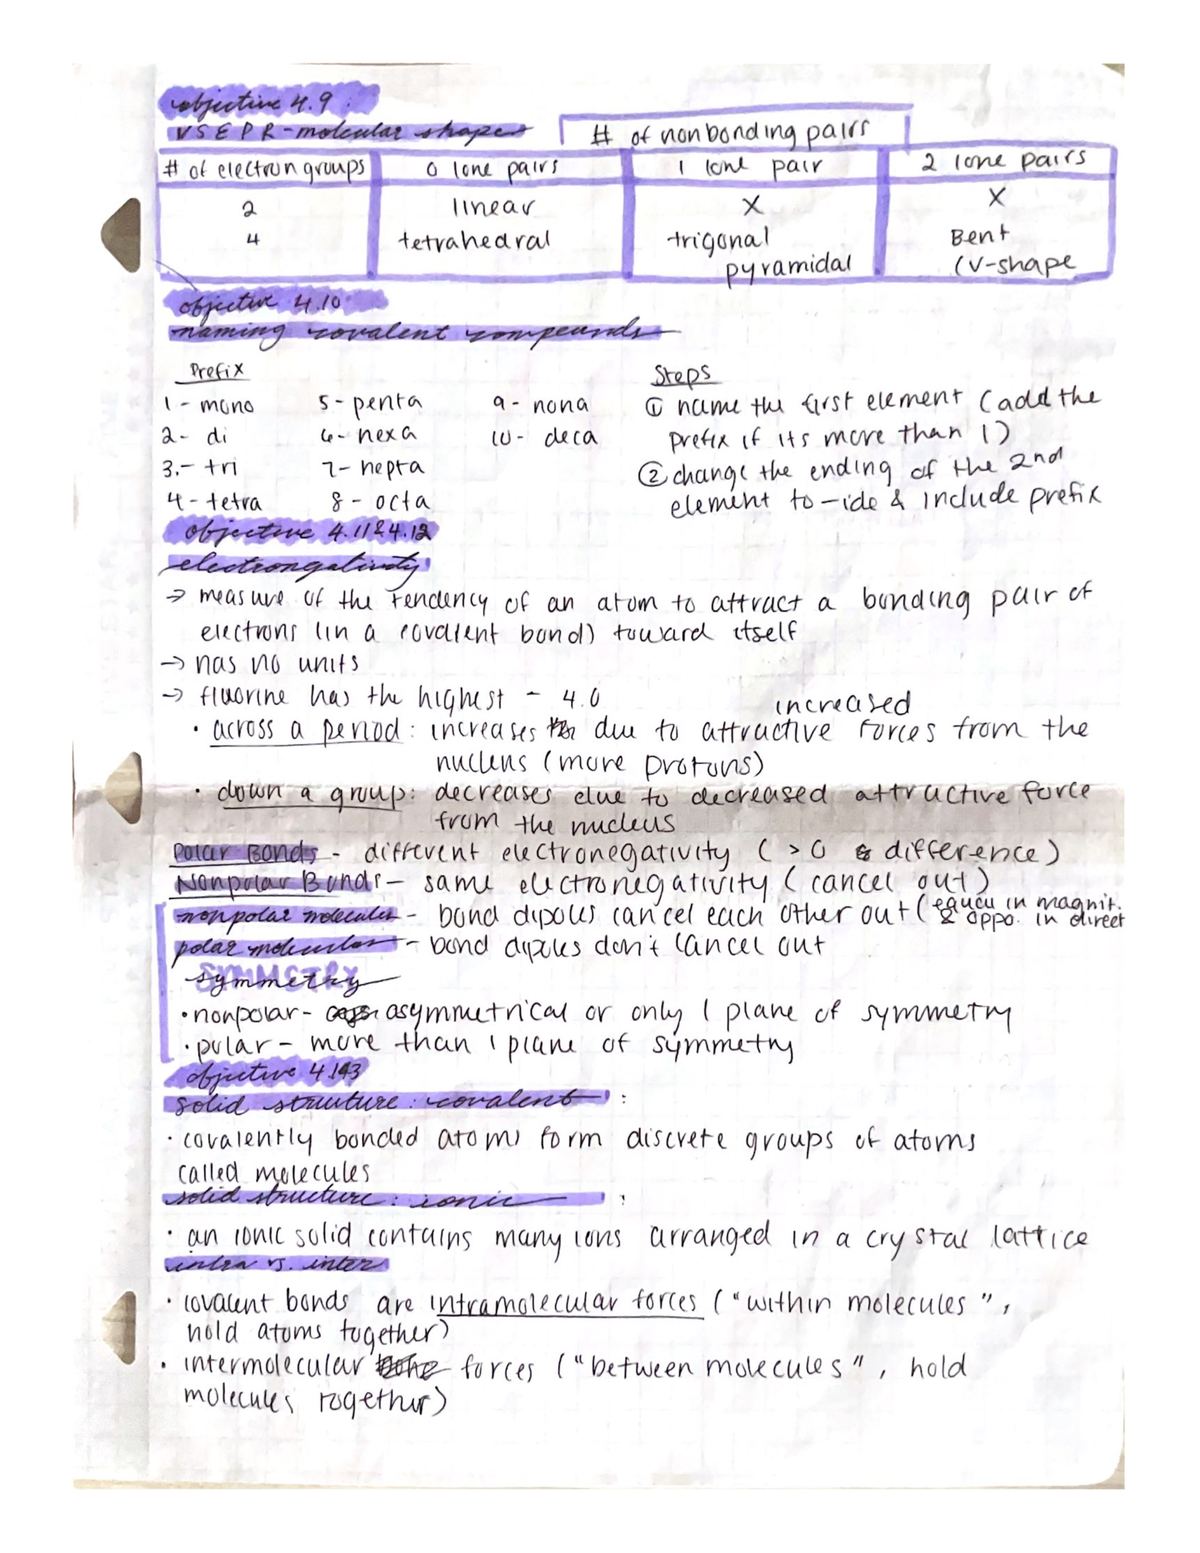 objective 4.9:
VSEPR - molecular shapes
# of nonbonding pairs
# of electron groups 0 lone pairs 1 lone pair 2 lone pairs
2 linear X X
4 tetrahedral trigonal pyramidal Bent (V-shape
objective 4.10
naming covalent compounds
Prefix
1 - mono 5 - penta 9 - nona
2 - di 6 - hexa 10 - deca
3. - tri 7 - hepta
4 - tetra 8 - octa
Steps
① name the first element (add the
prefix if its more than 1)
② change the ending of the 2nd
element to -ide & include prefix
objective 4.11 & 4.12
electrongativity
→ measure of the tendency of an atom to attract a bonding pair of
electrons (in a covalent bond) toward itself
→ has no units
→ fluorine has the highest - 4.0
increased
• across a period: increases due to attractive forces from the
nucleus (more protons)
• down a group: decreases due to decreased attractive force
from the nucleus
Polar Bonds - different electronegativity ( > 0 difference)
Nonpolar Bonds - same electronegativity (cancel out)
nonpolar molecules - bond dipoles cancel each other out (equal in magnit.
& oppo. in direct
polar molecules - bond dipoles don't cancel out
symmetry
• nonpolar - asymmetrical or only 1 plane of symmetry
• polar - more than 1 plane of symmetry
objective 4.13
solid structure: covalent:
• covalently bonded atoms form discrete groups of atoms
called molecules
solid structure: ionic:
• an ionic solid contains many ions arranged in a crystal lattice
intra vs. inter
• covalent bonds are intramolecular forces ("within molecules",
hold atoms together)
• intermolecular forces ("between molecules", hold
molecules together)